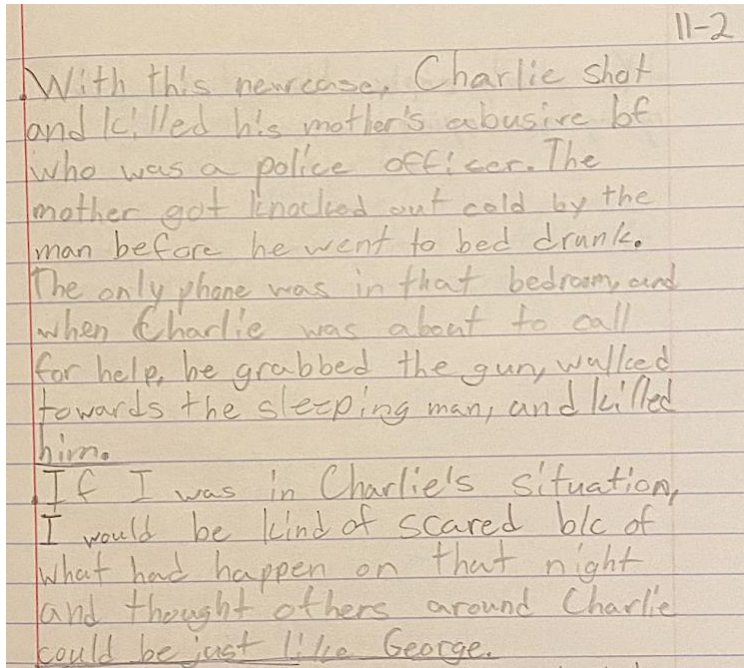 11-2
With this new case, Charlie shot
and killed his mother's abusive bf
who was a police officer. The
mother got knocked out cold by the
man before he went to bed drunk.
The only phone was in that bedroom, and
when Charlie was about to call
for help, he grabbed the gun, walked
towards the sleeping man, and killed
him.
If I was in Charlie's situation,
I would be kind of scared b/c of
what had happen on that night
and thought others around Charlie
could be just like George.